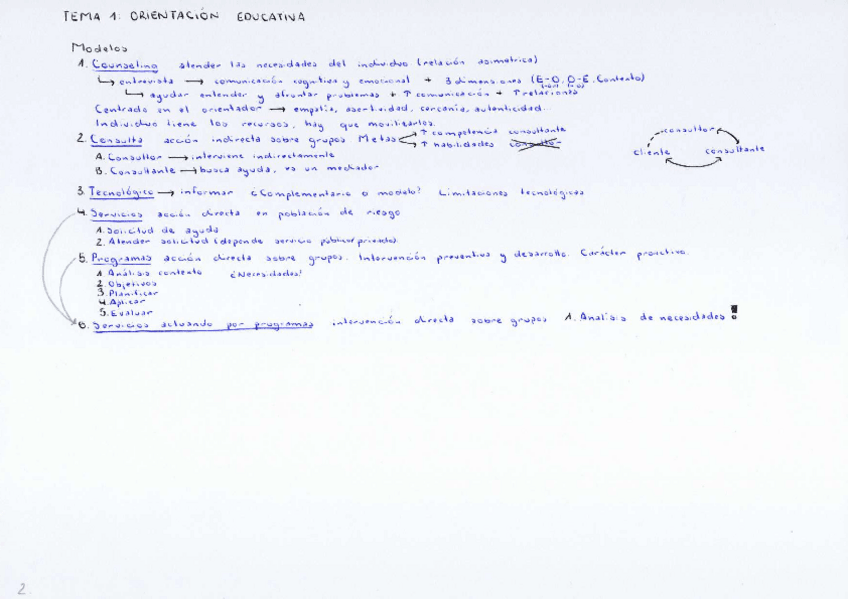 TEMA 1: ORIENTACIÓN EDUCATIVA
Modelos
1. Counseling atender las necesidades del individuo (relación asimétrica)
entrevista → comunicación cognitiva y emocional + 3 dimensiones (E-O, O-E, Contexto)
ayudar entender y afrontar problemas + ↑ comunicación + ↑ relaciones
Centrado en el orientador → empatía, asertividad, cercanía, autenticidad.
Individuo tiene los recursos, hay que movilizarlos.
2. Consulta acción indirecta sobre grupos Metas ↑ competencia consultante
↑ habilidades consultor
consultor
cliente consultante
A. Consultor → interviene indirectamente
B. Consultante → busca ayuda, es un mediador
3. Tecnológico → informar ¿Complementario o modelo? Limitaciones tecnológicas
4. Servicios acción directa en población de riesgo
1. Solicitud de ayuda
2. Atender solicitud (depende servicio público/privado)
5. Programas acción directa sobre grupos. Intervención preventiva y desarrollo. Carácter proactivo.
1. Análisis contexto ¿Necesidades?
2. Objetivos
3. Planificar
4. Aplicar
5. Evaluar
6. Servicios actuando por programas intervención directa sobre grupos 1. Analisis de necesidades!
2